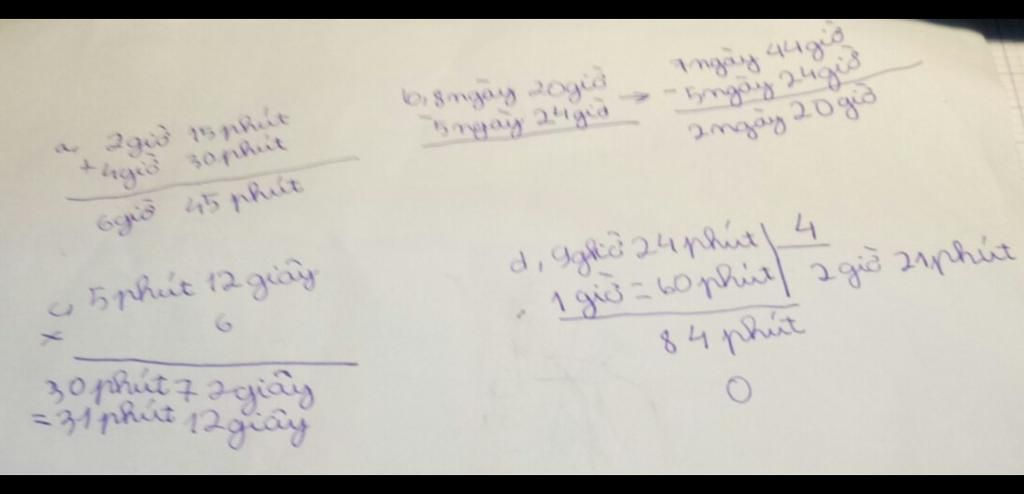 a, 2giờ 15phút
+ 4giờ 30phút
6giờ 45 phút
b, 8ngày 20giờ →
- 5ngày 24giờ
7ngày 44giờ
- 5ngày 24giờ
2ngày 20giờ
c, 5 phút 12 giây
x 6
30phút 72giây
= 31phút 12giây
d, 9giờ 24phút 4
1 giờ = 60phút 2 giờ 21phút
84 phút
0